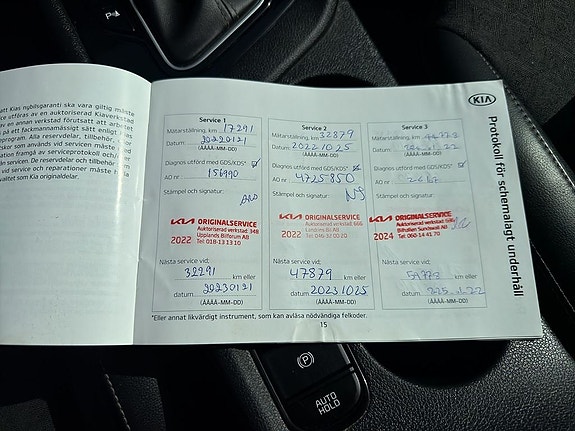 att Kias nybilsgaranti ska vara giltig måste
utföras av en auktoriserad Kiaverkstad
av en annan verkstad förutsatt att arbetet
på ett fackmannamässigt sätt enligt Kias
program. Alla reservdelar, tillbehör
som används vid servicen måste
framgå av serviceprotokoll och/eller
servicen. De reservdelar och tillbehör
vid service och reparationer måste
kvalitet som Kia originaldelar.
KIA
Protokoll för schemalagt underhåll
Service 1
Mätarställning, km 17291
Datum 20220121
(ÅÅÅÅ-MM-DD)
Diagnos utförd med GDS/KDS*
AO nr 156990
Stämpel och signatur:
KIA ORIGINALSERVICE
Auktoriserad verkstad: 348
2022 Upplands Bilforum AB
Tel: 018-13 13 10
Nästa service vid:
32291 km eller
datum 20230121
(ÅÅÅÅ-MM-DD)
Service 2
Mätarställning, km 32879
Datum 20221025
(ÅÅÅÅ-MM-DD)
Diagnos utförd med GDS/KDS*
AO nr 4725850
Stämpel och signatur:
KIA ORIGINALSERVICE
Auktoriserad verkstad 666
2022
Nästa service vid:
47879 km eller
datum 20231025
(ÅÅÅÅ-MM-DD)
Service 3
Mätarställning, km 44773
Datum
(ÅÅÅÅ-MM-DD)
Diagnos utförd med GDS/KDS*
AO nr
Stämpel och signatur:
KIA ORIGINALSERVICE
Auktoriserad verkstad
2024 Bilhallen Sundsvall AB
Tel: 060-14 41 70
Nästa service vid:
59773 km eller
datum
(ÅÅÅÅ-MM-DD)
*Eller annat likvärdigt instrument, som kan avläsa nödvändiga felkoder.
15
P
AUTO
HOLD